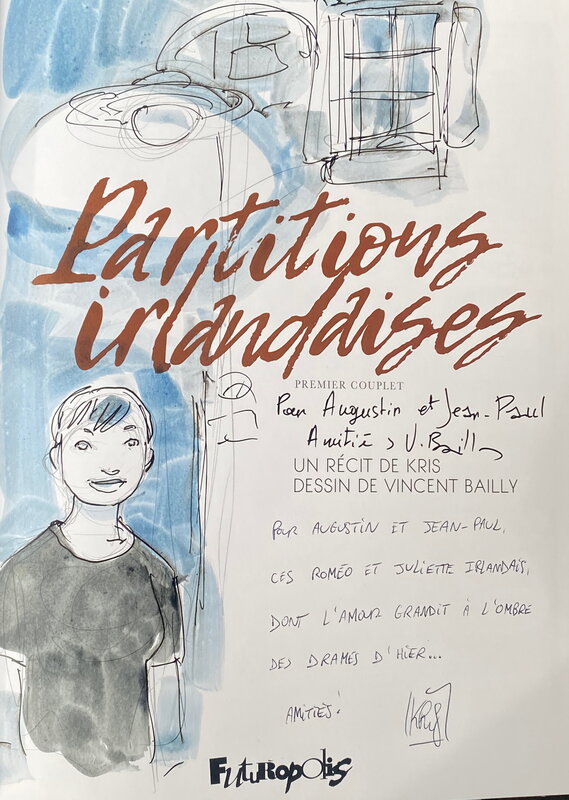 Partitions
irlandaises
PREMIER COUPLET
Pour Augustin et Jean-Paul
Amitié, V. Bailly
UN RÉCIT DE KRIS
DESSIN DE VINCENT BAILLY
POUR AUGUSTIN ET JEAN-PAUL,
CES ROMÉO ET JULIETTE IRLANDAIS,
DONT L'AMOUR GRANDIT À L'OMBRE
DES DRAMES D'HIER...
AMITIÉS!
KRIS
FUTUROPOLIS